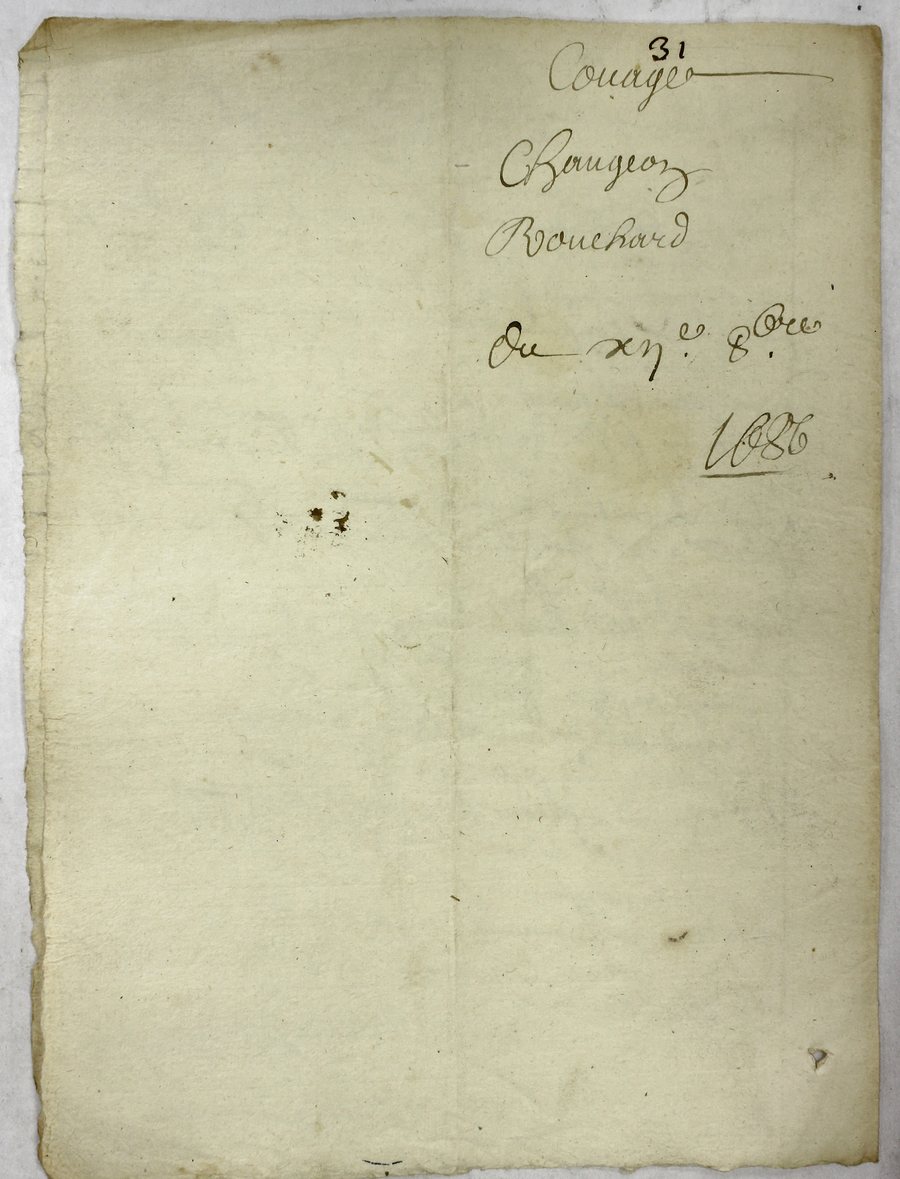 31
Couagé
Changeon
Bouchard
Du xij.e 8.bre
1686